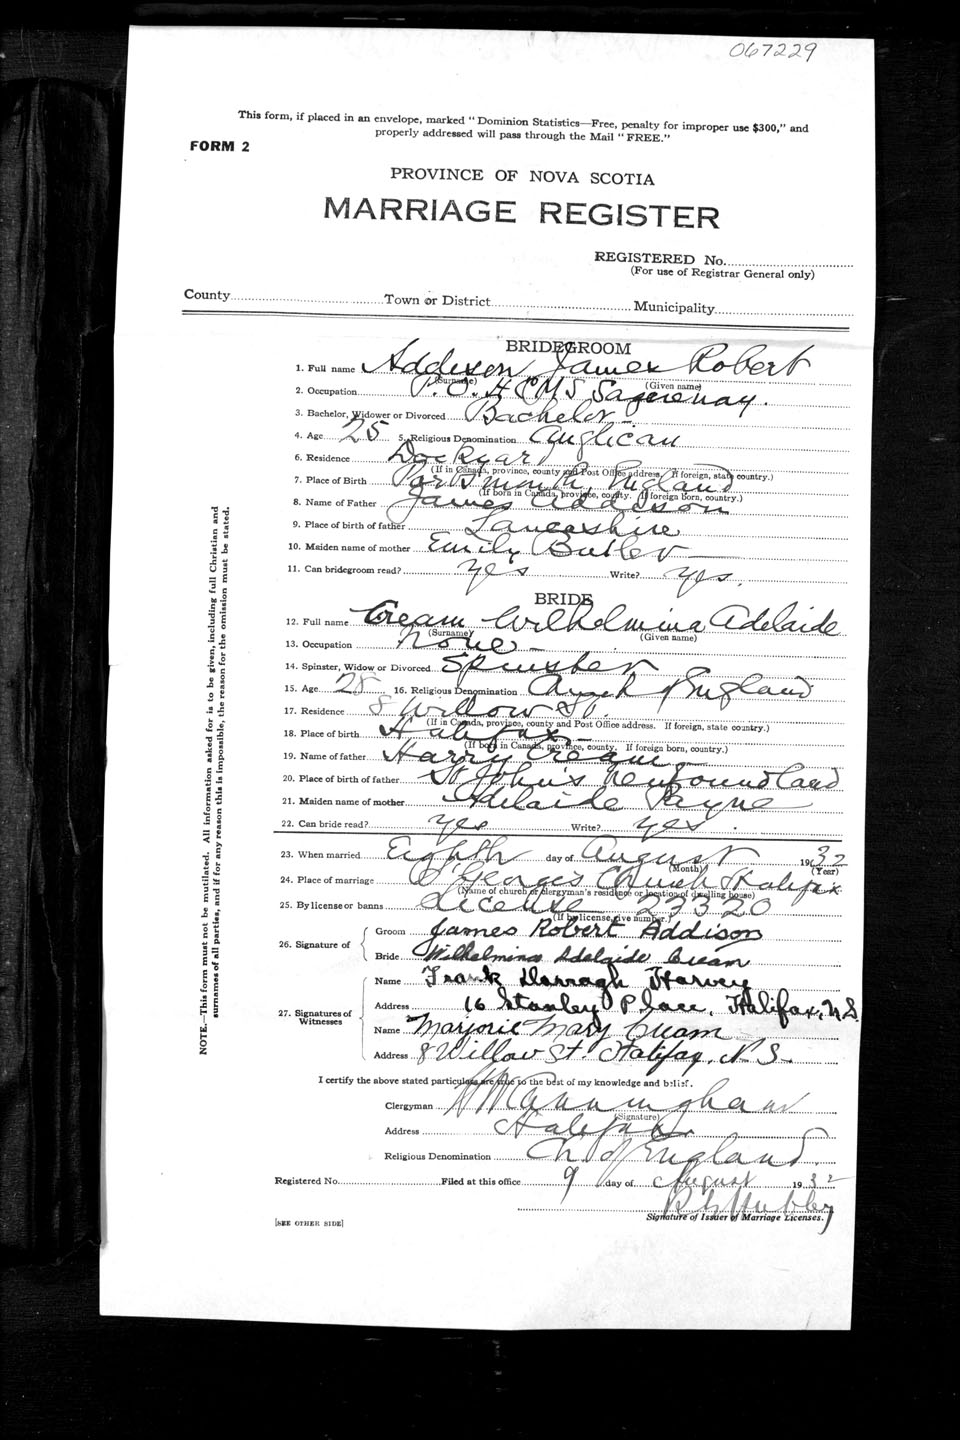 067229
This form, if placed in an envelope, marked "Dominion Statistics—Free, penalty for improper use $300," and
properly addressed will pass through the Mail "FREE."
FORM 2
PROVINCE OF NOVA SCOTIA
MARRIAGE REGISTER
REGISTERED No.
(For use of Registrar General only)
County Town or District Municipality
BRIDEGROOM
1. Full name Addison James Robert
(Surname) (Given name)
2. Occupation P.O. H C M S Saguenay.
3. Bachelor, Widower or Divorced Bachelor
4. Age 25 5. Religious Denomination Anglican
6. Residence Dockyard
(If in Canada, province, county and Post Office address. If foreign, state country.)
7. Place of Birth Portsmouth, England
(If born in Canada, province, county. If foreign born, country.)
8. Name of Father James Addison
9. Place of birth of father Lancashire
10. Maiden name of mother Emily Butler
11. Can bridegroom read? yes Write? yes.
BRIDE
12. Full name Cream Wilhelmina Adelaide
(Surname) (Given name)
13. Occupation None
14. Spinster, Widow or Divorced Spinster
15. Age 28 16. Religious Denomination Church of England
17. Residence 8 Willow St.
(If in Canada, province, county and Post Office address. If foreign, state country.)
18. Place of birth Halifax
(If born in Canada, province, county. If foreign born, country.)
19. Name of father Harry Cream
20. Place of birth of father St John's Newfoundland
21. Maiden name of mother Adelaide Payne
22. Can bride read? yes Write? yes.
23. When married Eighth day of August 1932
(Month) (Year)
24. Place of marriage St George's Church Halifax
(Name of church or clergyman's residence or location of dwelling house)
25. By license or banns License 23320
(If by license, give number.)
26. Signature of
Groom James Robert Addison
Bride Wilhelmina Adelaide Cream
27. Signatures of Witnesses
Name Frank Darragh Harvey
Address 16 Stanley Place, Halifax, N.S.
Name Marjorie Mary Cream
Address 8 Willow St. Halifax, N.S.
I certify the above stated particulars are true to the best of my knowledge and belief.
Clergyman
(Signature)
Address Halifax
Religious Denomination Ch. of England.
Registered No. Filed at this office 9 day of August 1932
Signature of Issuer of Marriage Licenses.
[SEE OTHER SIDE]
NOTE.—This form must not be mutilated. All information asked for is to be given, including full Christian and
surnames of all parties, and if for any reason this is impossible, the reason for the omission must be stated.